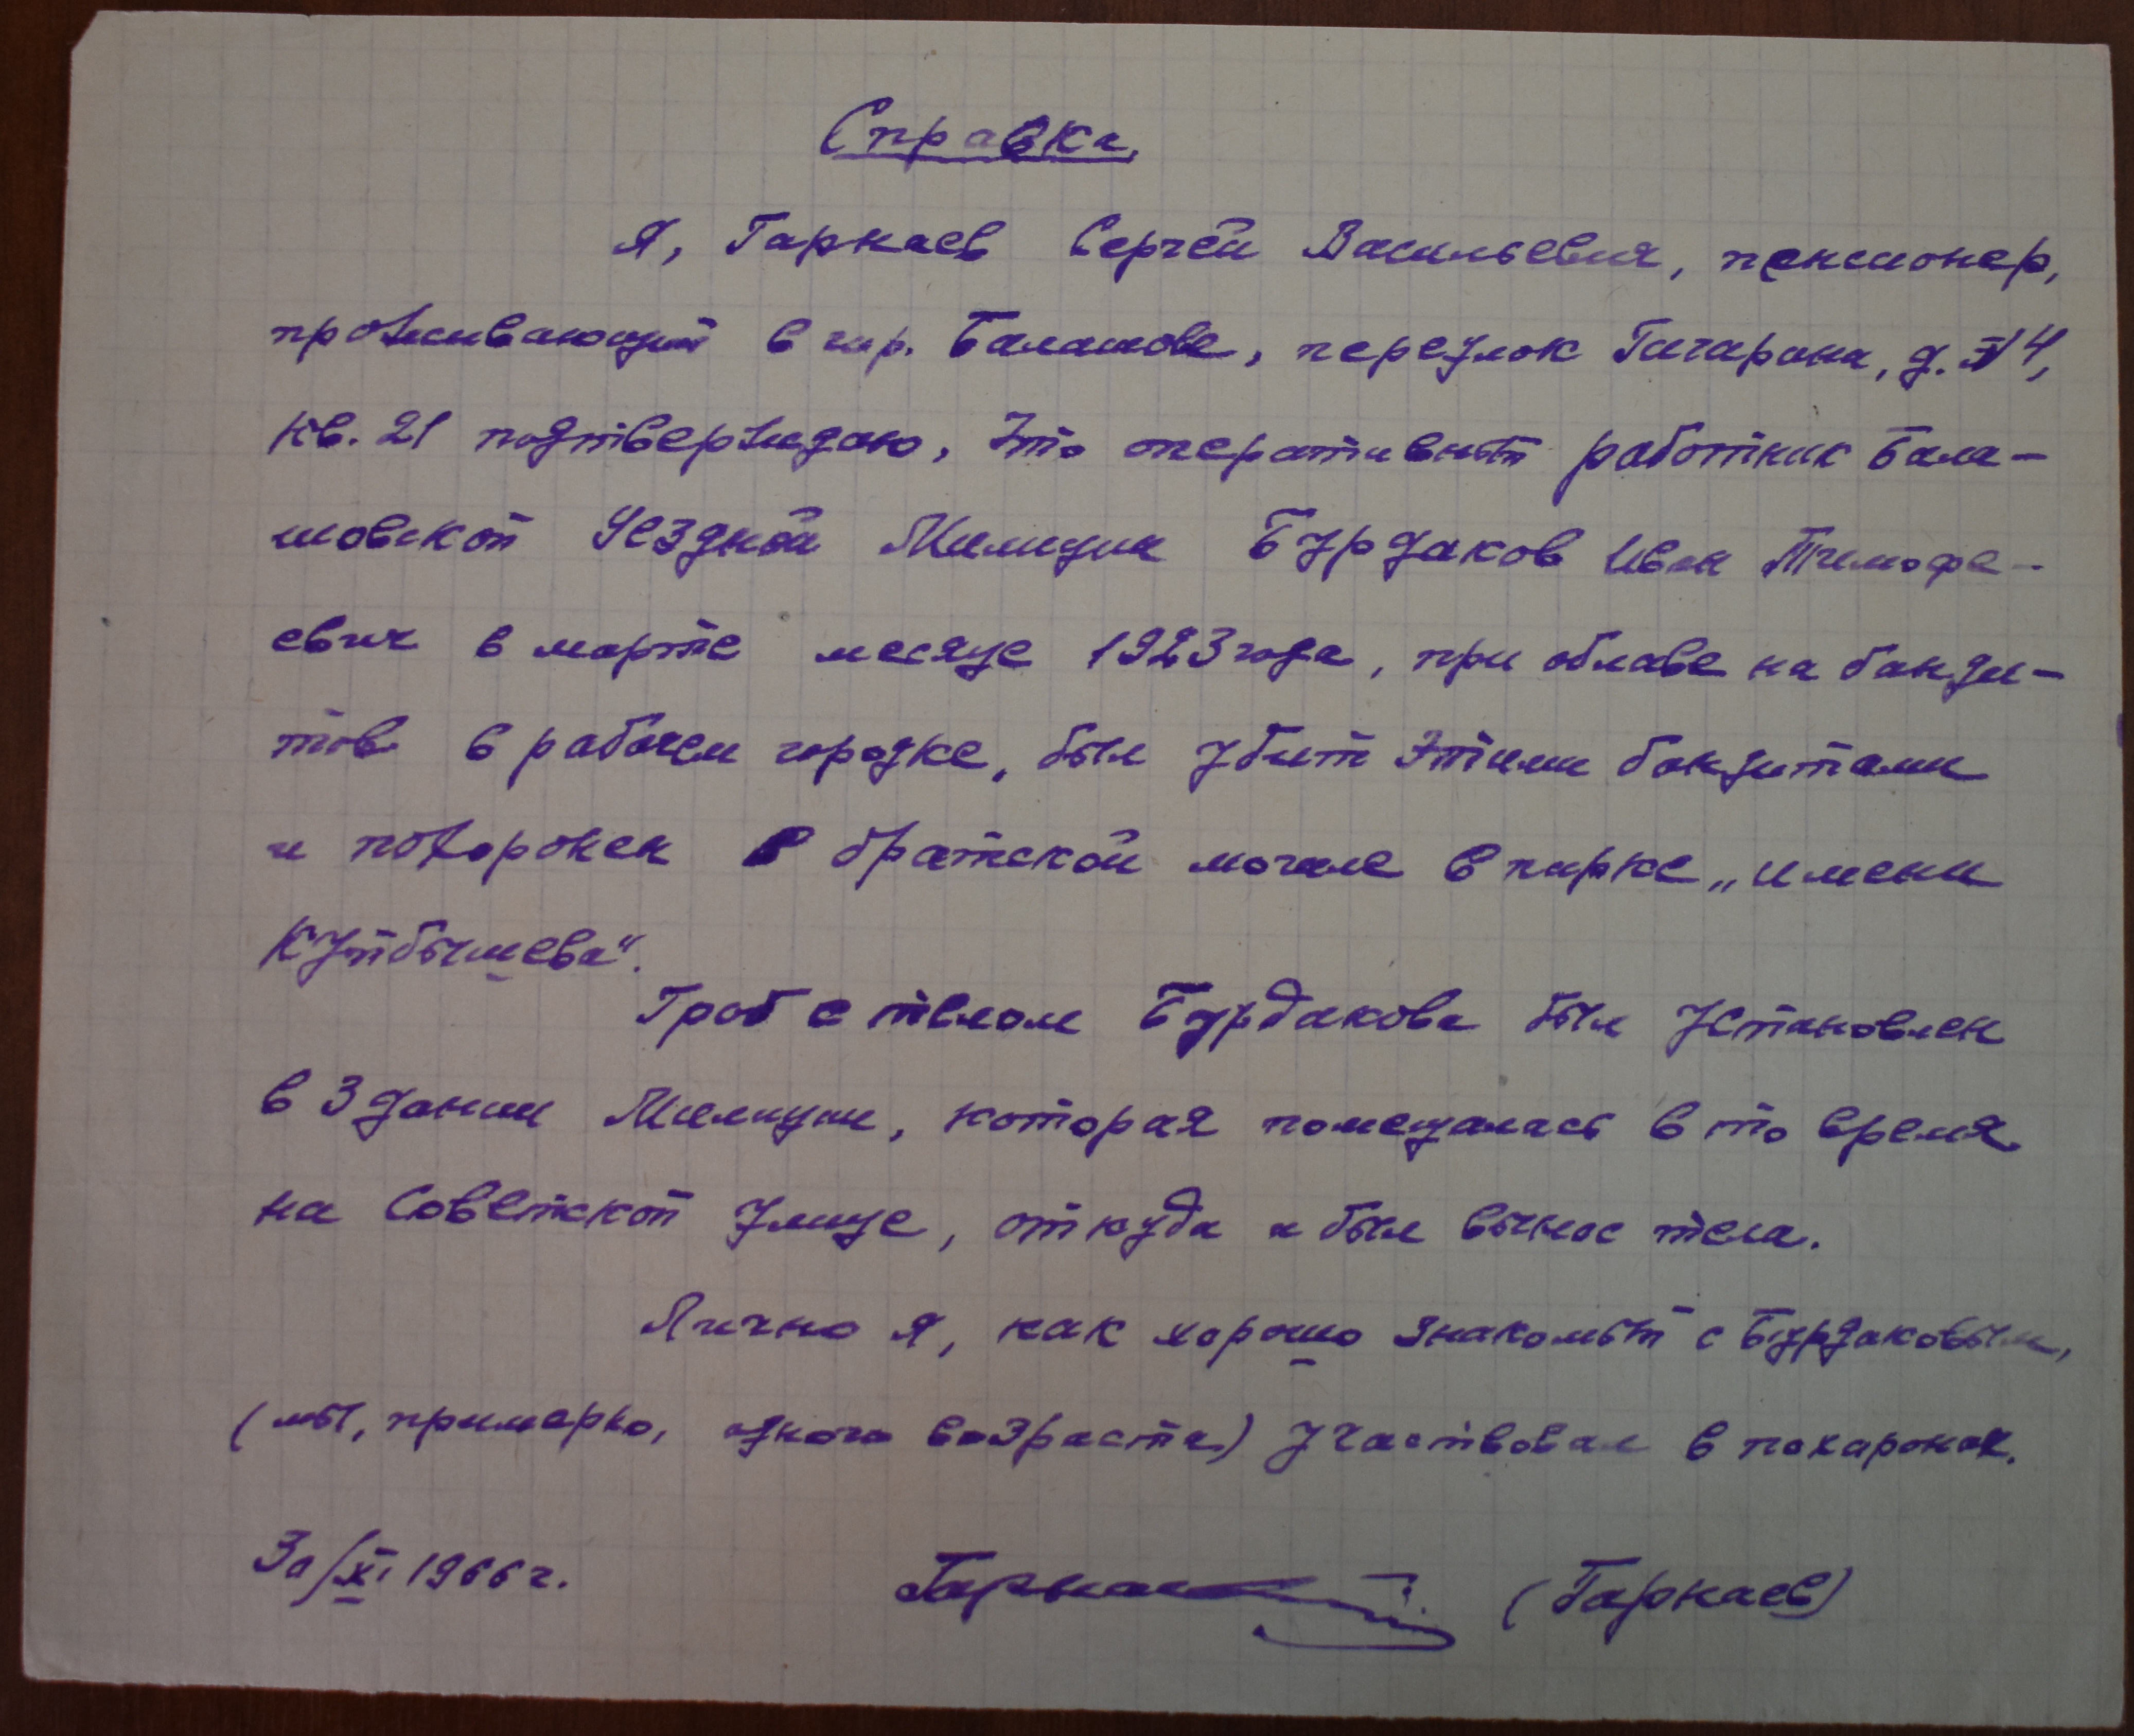 Справка.
Я, Гаркаев Сергей Васильевич, пенсионер,
проживающий в гор. Балашове, переулок Гагарина, д. № 4,
кв. 21 подтверждаю, что оперативный работник Бала-
шовской Уездной Милиции Бурдаков Иван Тимофе-
евич в марте месяце 1923 года, при облаве на банди-
тов в рабочем городке, был убит этими бандитами
и похоронен в братской могиле в парке „имени
Куйбышева".
Гроб с телом Бурдакова был установлен
в здании Милиции, которая помещалась в то время
на Советской улице, откуда и был вынос тела.
Лично я, как хорошо знакомый с Бурдаковым,
(мы, примерно, одного возраста) участвовал в похоронах.
30/XI 1966 г.
Гаркаев (Гаркаев)